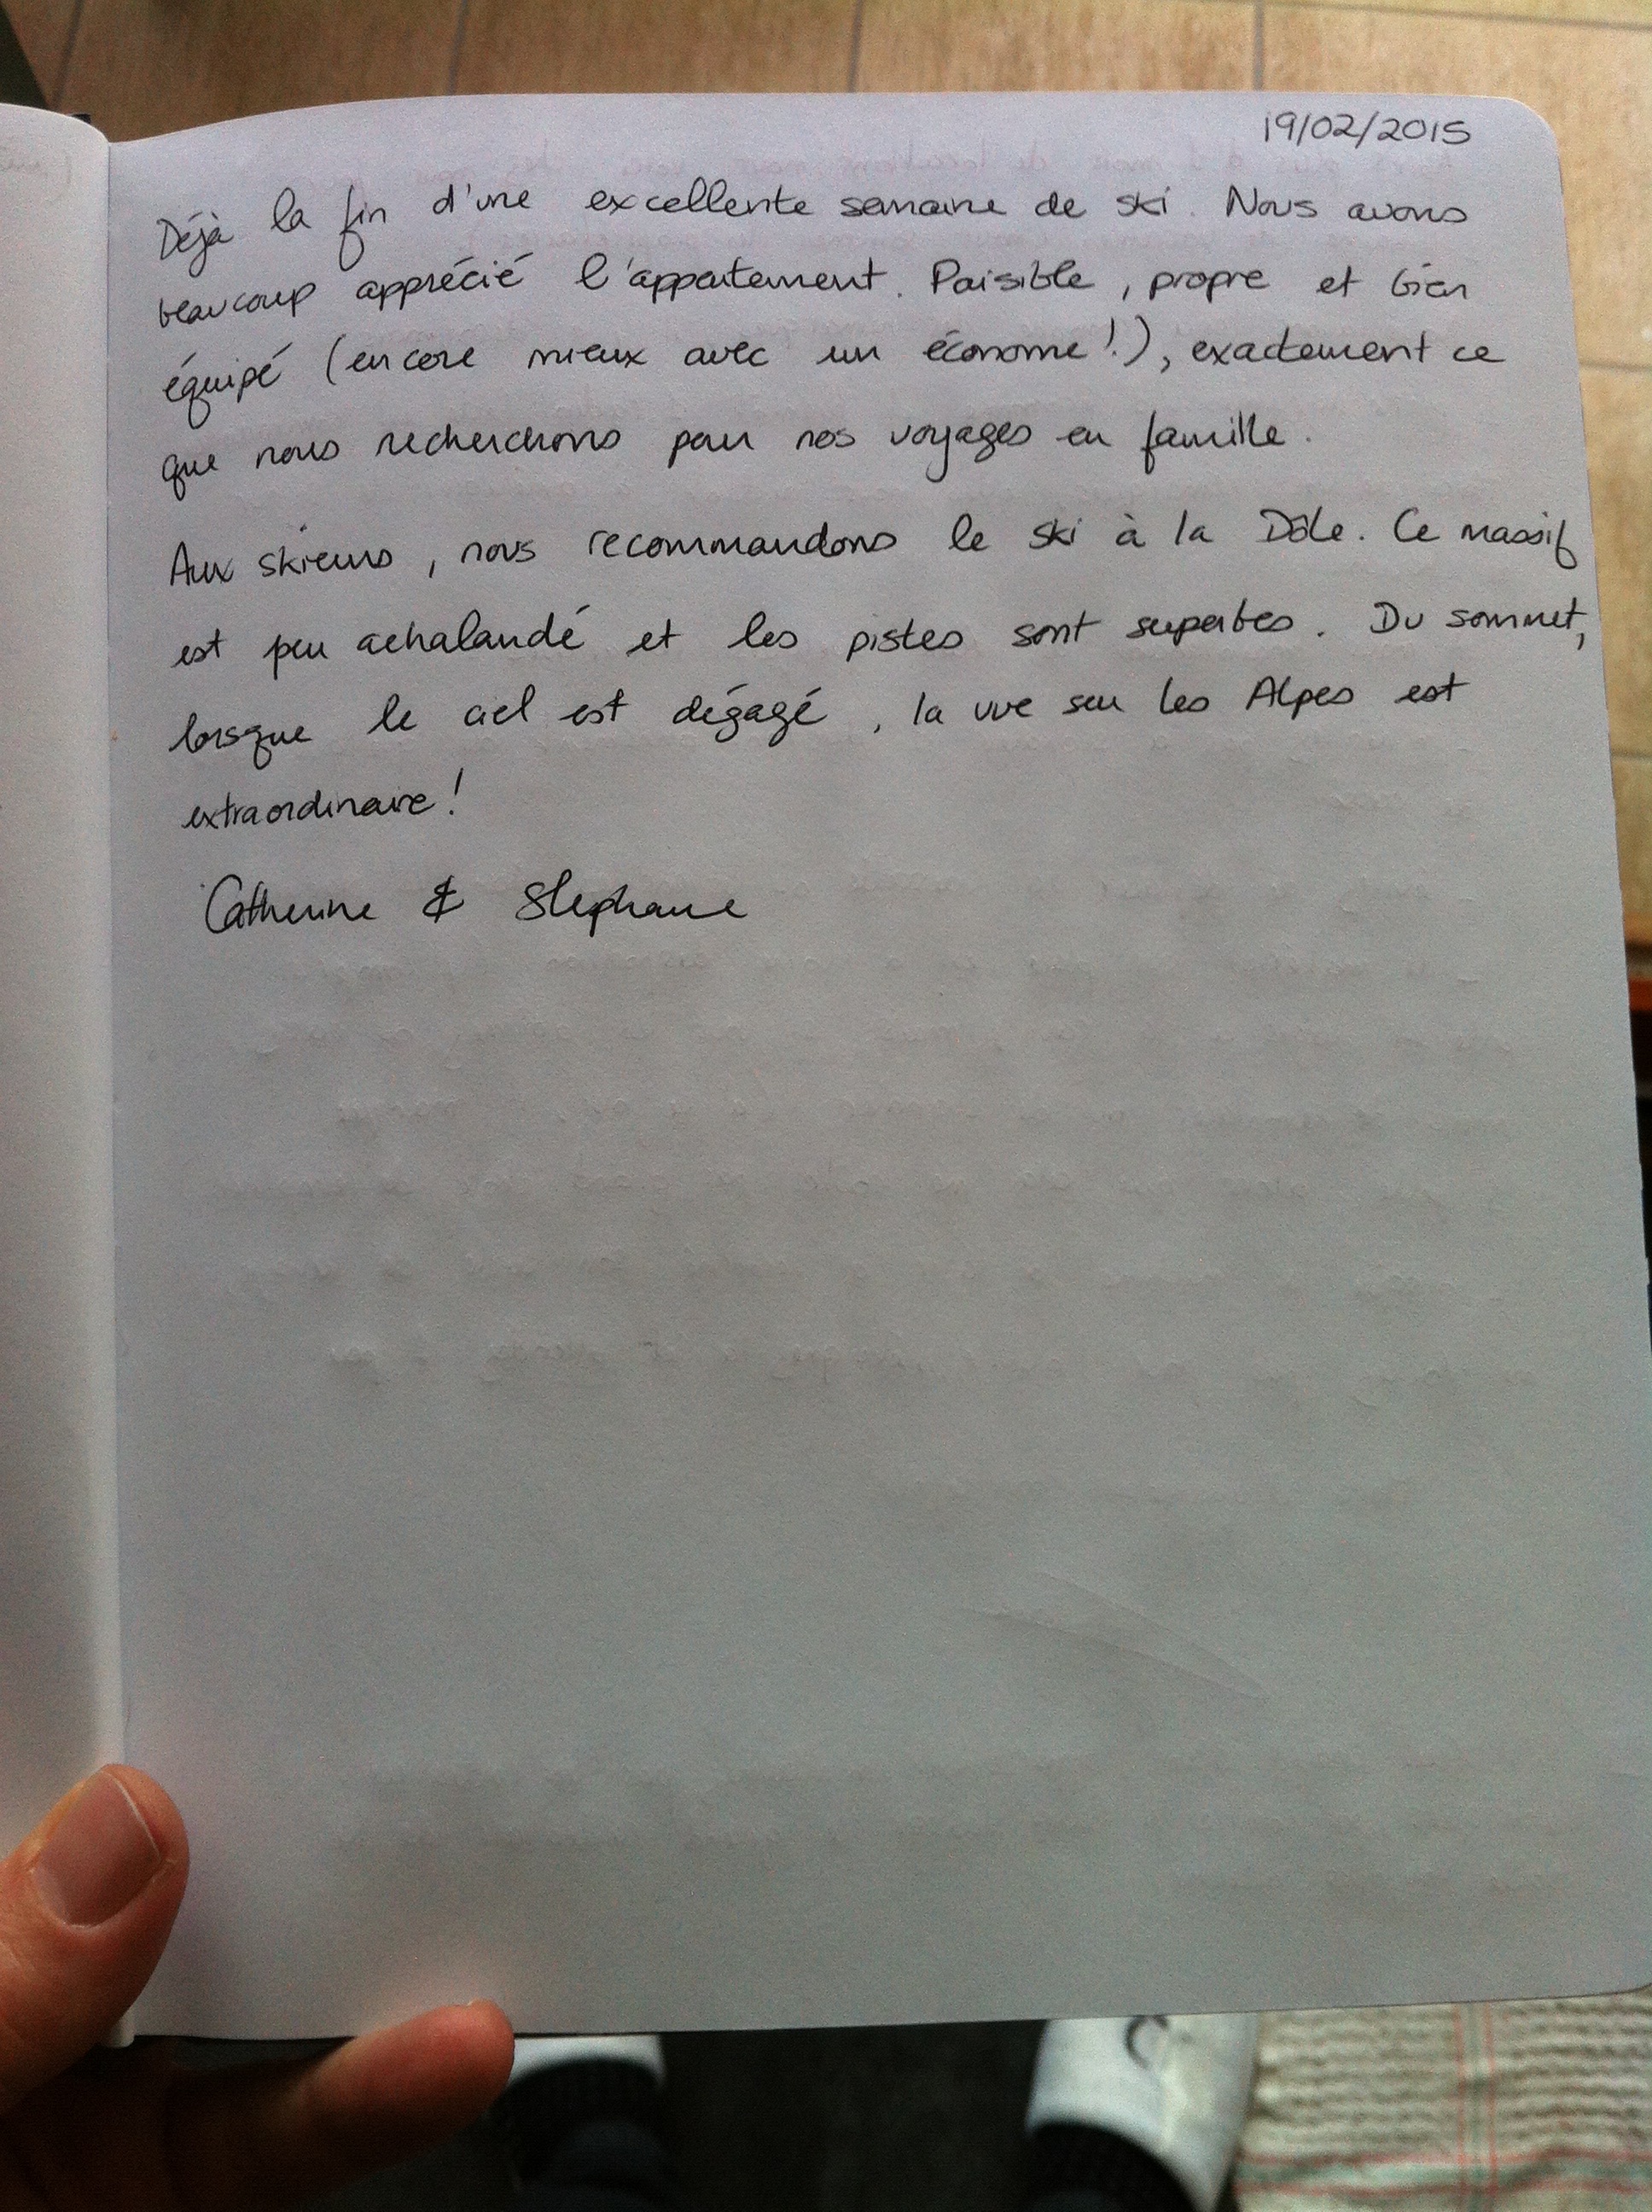 19/02/2015
Déjà la fin d'une excellente semaine de ski. Nous avons
beaucoup apprécié l'appartement. Paisible, propre et bien
équipé (encore mieux avec un économe!), exactement ce
que nous recherchons pour nos voyages en famille.
Aux skieurs, nous recommandons le ski à la Dôle. Ce massif
est peu achalandé et les pistes sont superbes. Du sommet,
lorsque le ciel est dégagé, la vue sur les Alpes est
extraordinaire!
Catherine & Stephane